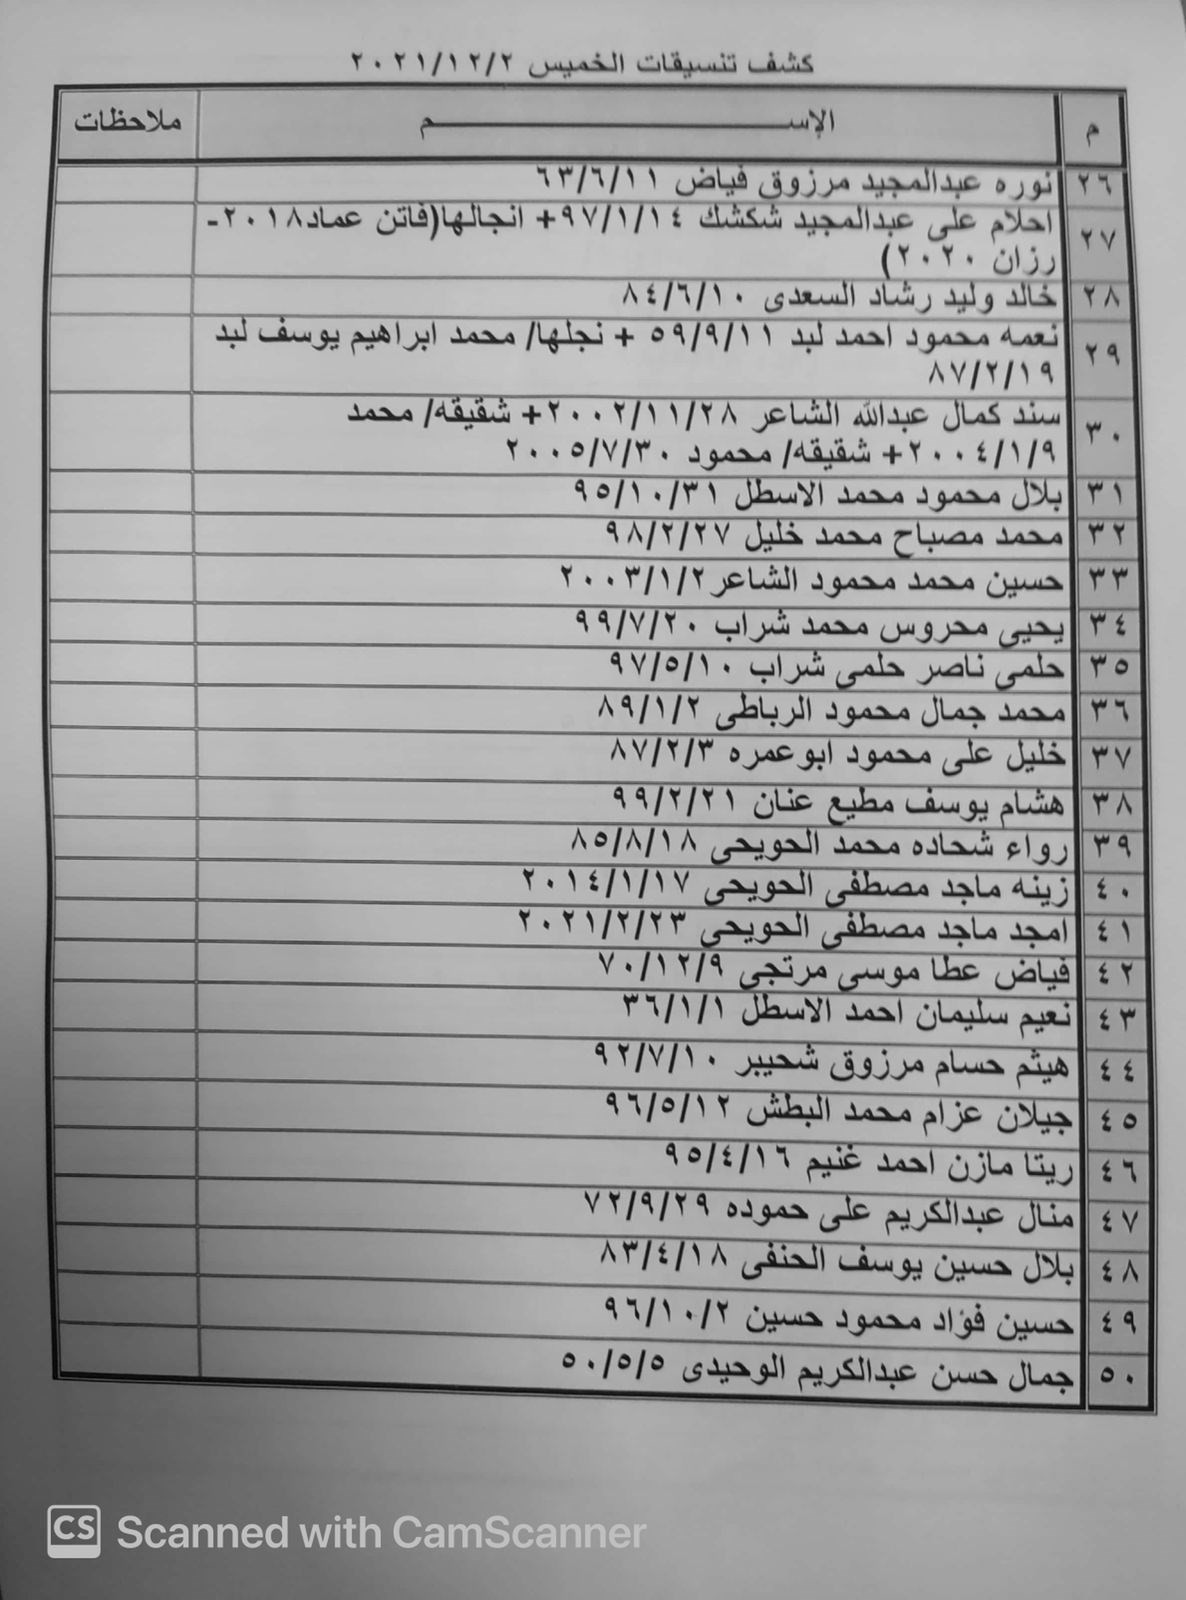 كشف تنسيقات الخميس ٢٠٢١/١٢/٢
م الإســـــــــــــــم ملاحظات
٢٦ نوره عبدالمجيد مرزوق فياض ٦٣/٦/١١
٢٧ احلام على عبدالمجيد شكشك ٩٧/١/١٤+ انجالها(فاتن عماد٢٠١٨-
رزان ٢٠٢٠)
٢٨ خالد وليد رشاد السعدى ٨٤/٦/١٠
٢٩ نعمه محمود احمد لبد ٥٩/٩/١١ + نجلها/ محمد ابراهيم يوسف لبد
٨٧/٢/١٩
٣٠ سند كمال عبدالله الشاعر ٢٠٠٢/١١/٢٨+ شقيقه/ محمد
٢٠٠٤/١/٩+ شقيقه/ محمود ٢٠٠٥/٧/٣٠
٣١ بلال محمود محمد الاسطل ٩٥/١٠/٣١
٣٢ محمد مصباح محمد خليل ٩٨/٢/٢٧
٣٣ حسين محمد محمود الشاعر ٢٠٠٣/١/٢
٣٤ يحيى محروس محمد شراب ٩٩/٧/٢٠
٣٥ حلمى ناصر حلمى شراب ٩٧/٥/١٠
٣٦ محمد جمال محمود الرباطى ٨٩/١/٢
٣٧ خليل على محمود ابوعمره ٨٧/٢/٣
٣٨ هشام يوسف مطيع عنان ٩٩/٢/٢١
٣٩ رواء شحاده محمد الحويحى ٨٥/٨/١٨
٤٠ زينه ماجد مصطفى الحويحى ٢٠١٤/١/١٧
٤١ امجد ماجد مصطفى الحويحى ٢٠٢١/٢/٢٣
٤٢ فياض عطا موسى مرتجى ٧٠/١٢/٩
٤٣ نعيم سليمان احمد الاسطل ٣٦/١/١
٤٤ هيثم حسام مرزوق شحيبر ٩٢/٧/١٠
٤٥ جيلان عزام محمد البطش ٩٦/٥/١٢
٤٦ ريتا مازن احمد غنيم ٩٥/٤/١٦
٤٧ منال عبدالكريم على حموده ٧٢/٩/٢٩
٤٨ بلال حسين يوسف الحنفى ٨٣/٤/١٨
٤٩ حسين فؤاد محمود حسين ٩٦/١٠/٢
٥٠ جمال حسن عبدالكريم الوحيدى ٥٠/٥/٥
CS Scanned with CamScanner